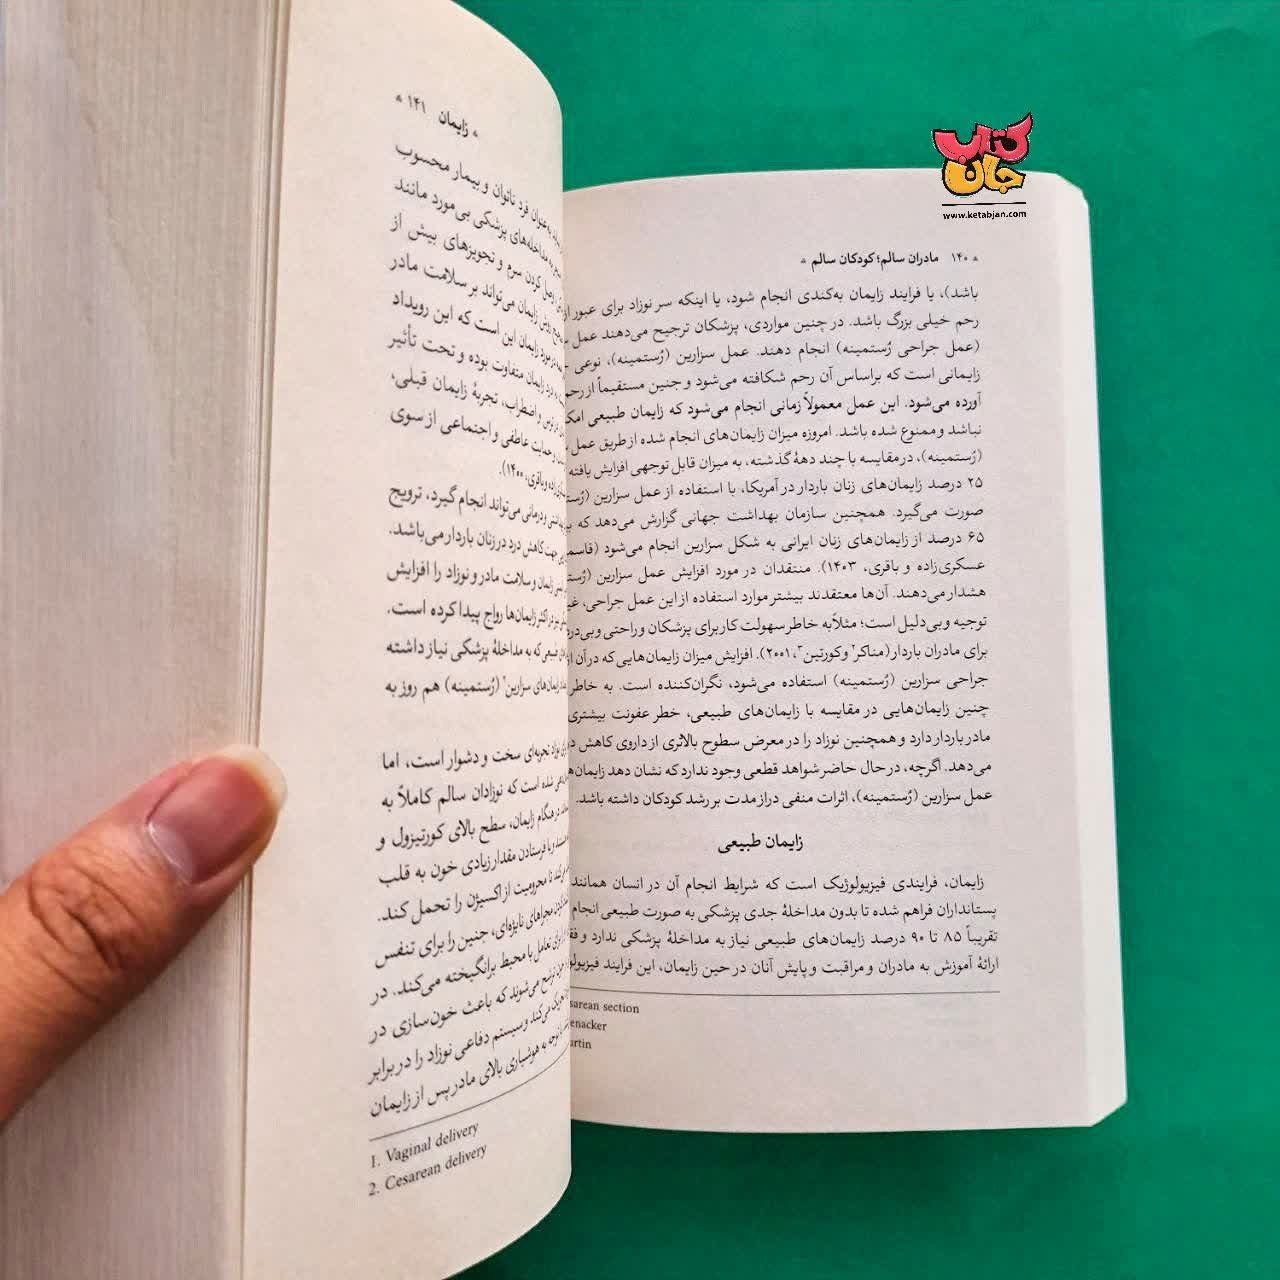 کتاب جان
www.ketabjan.com
۱۴۰ مادران سالم؛ کودکان سالم
باشد)، یا فرایند زایمان به‌کندی انجام شود، یا اینکه سر نوزاد برای عبور
رحم خیلی بزرگ باشد. در چنین مواردی، پزشکان ترجیح می‌دهند عمل
(عمل جراحی رُستمینه) انجام دهند. عمل سزارین (رُستمینه)، نوعی
زایمانی است که براساس آن رحم شکافته می‌شود و جنین مستقیماً از رحم
آورده می‌شود. این عمل معمولاً زمانی انجام می‌شود که زایمان طبیعی
نباشد و ممنوع شده باشد. امروزه میزان زایمان‌های انجام شده از طریق عمل
(رُستمینه)، در مقایسه با چند دههٔ گذشته، به میزان قابل توجهی افزایش یافته
۲۵ درصد زایمان‌های زنان باردار در آمریکا، با استفاده از عمل سزارین
صورت می‌گیرد. همچنین سازمان بهداشت جهانی گزارش می‌دهد که
۶۵ درصد از زایمان‌های زنان ایرانی به شکل سزارین انجام می‌شود
عسکری‌زاده و باقری، ۱۴۰۳). منتقدان در مورد افزایش عمل سزارین
هشدار می‌دهند. آن‌ها معتقدند بیشتر موارد استفاده از این عمل جراحی،
توجیه و بی‌دلیل است؛ مثلاً به خاطر سهولت کار برای پزشکان و راحتی و
برای مادران باردار (مناکر۲ و کورتین۳، ۲۰۰۱). افزایش میزان زایمان‌هایی که در آن
جراحی سزارین (رُستمینه) استفاده می‌شود، نگران‌کننده است. به خاطر
چنین زایمان‌هایی در مقایسه با زایمان‌های طبیعی، خطر عفونت بیشتری
مادر باردار دارد و همچنین نوزاد را در معرض سطوح بالاتری از داروی کاهش
می‌دهد. اگرچه، در حال حاضر شواهد قطعی وجود ندارد که نشان دهد
عمل سزارین (رُستمینه)، اثرات منفی درازمدت بر رشد کودکان داشته باشد.
زایمان طبیعی
زایمان، فرایندی فیزیولوژیک است که شرایط انجام آن در انسان همانند
پستانداران فراهم شده تا بدون مداخلهٔ جدی پزشکی به صورت طبیعی انجام
تقریباً ۸۵ تا ۹۰ درصد زایمان‌های طبیعی نیاز به مداخلهٔ پزشکی ندارد و
ارائهٔ آموزش به مادران و مراقبت و پایش آنان در حین زایمان، این فرایند
section
زایمان ۱۴۱
به‌عنوان فرد ناتوان و بیمار محسوب
به مداخله‌های پزشکی بی‌مورد مانند
کردن سرم و تجویزهای بیش از
روش زایمان می‌تواند بر سلامت مادر
در مورد زایمان این است که این رویداد
درد زایمان متفاوت بوده و تحت تأثیر
ترس و اضطراب، تجربهٔ زایمان قبلی،
حمایت عاطفی و اجتماعی از سوی
و باقری، ۱۴۰۰).
و درمانی می‌تواند انجام گیرد، ترویج
جهت کاهش درد در زنان باردار می‌باشد.
زایمان و سلامت مادر و نوزاد را افزایش
در اکثر زایمان‌ها رواج پیدا کرده است.
طبیعی که به مداخلهٔ پزشکی نیاز داشته
زایمان‌های سزارین۲ (رُستمینه) هم روز به
تجربه‌ای سخت و دشوار است، اما
شده است که نوزادان سالم کاملاً به
در هنگام زایمان، سطح بالای کورتیزول و
و با فرستادن مقدار زیادی خون به قلب
تا محرومیت از اکسیژن را تحمل کند.
مجراهای نایژه‌ای، جنین را برای تنفس
برای تعامل با محیط برانگیخته می‌کند. در
ترشح می‌شوند که باعث خون‌سازی در
می‌کند و سیستم دفاعی نوزاد را در برابر
توجه به هوشیاری بالای مادر پس از زایمان
1. Vaginal delivery
2. Cesarean delivery